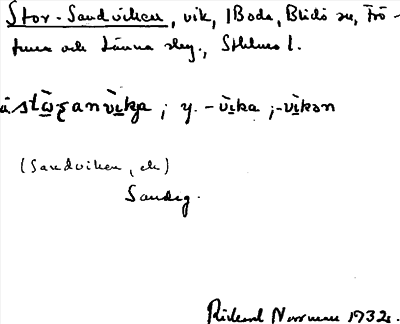 Stor-Sandviken, vik, i Boda, Blidö sn, Frö-
tuna och Länna slg., Sthlms l.
y. -vika ; -vikən
(Sandviken, ek)
Sandeg.
Rickard Norrman 1932.